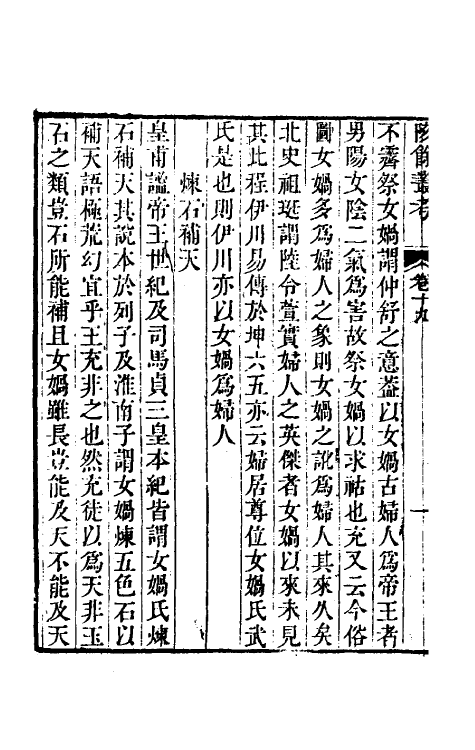 陔餘叢考 卷十九 一
不霽祭女媧謂仲舒之意葢以女媧古婦人爲帝王者
男陽女陰二氣爲害故祭女媧以求祜也充又云今俗
圖女媧多爲婦人之象則女媧之訛爲婦人其來久矣
北史祖珽謂陸令萱實婦人之英傑者女媧以來未見
其比程伊川易傳於坤六五亦云婦居尊位女媧氏武
氏是也則伊川亦以女媧爲婦人
煉石補天
皇甫謐帝王世紀及司馬貞三皇本紀皆謂女媧氏煉
石補天其說本於列子及淮南子謂女媧煉五色石以
補天語極荒幻宜乎王充非之也然充徒以爲天非玉
石之類豈石所能補且女媧雖長豈能及天不能及天